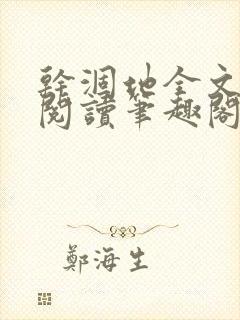 幹涸地全文
閱讀筆趣閣
鄭海生